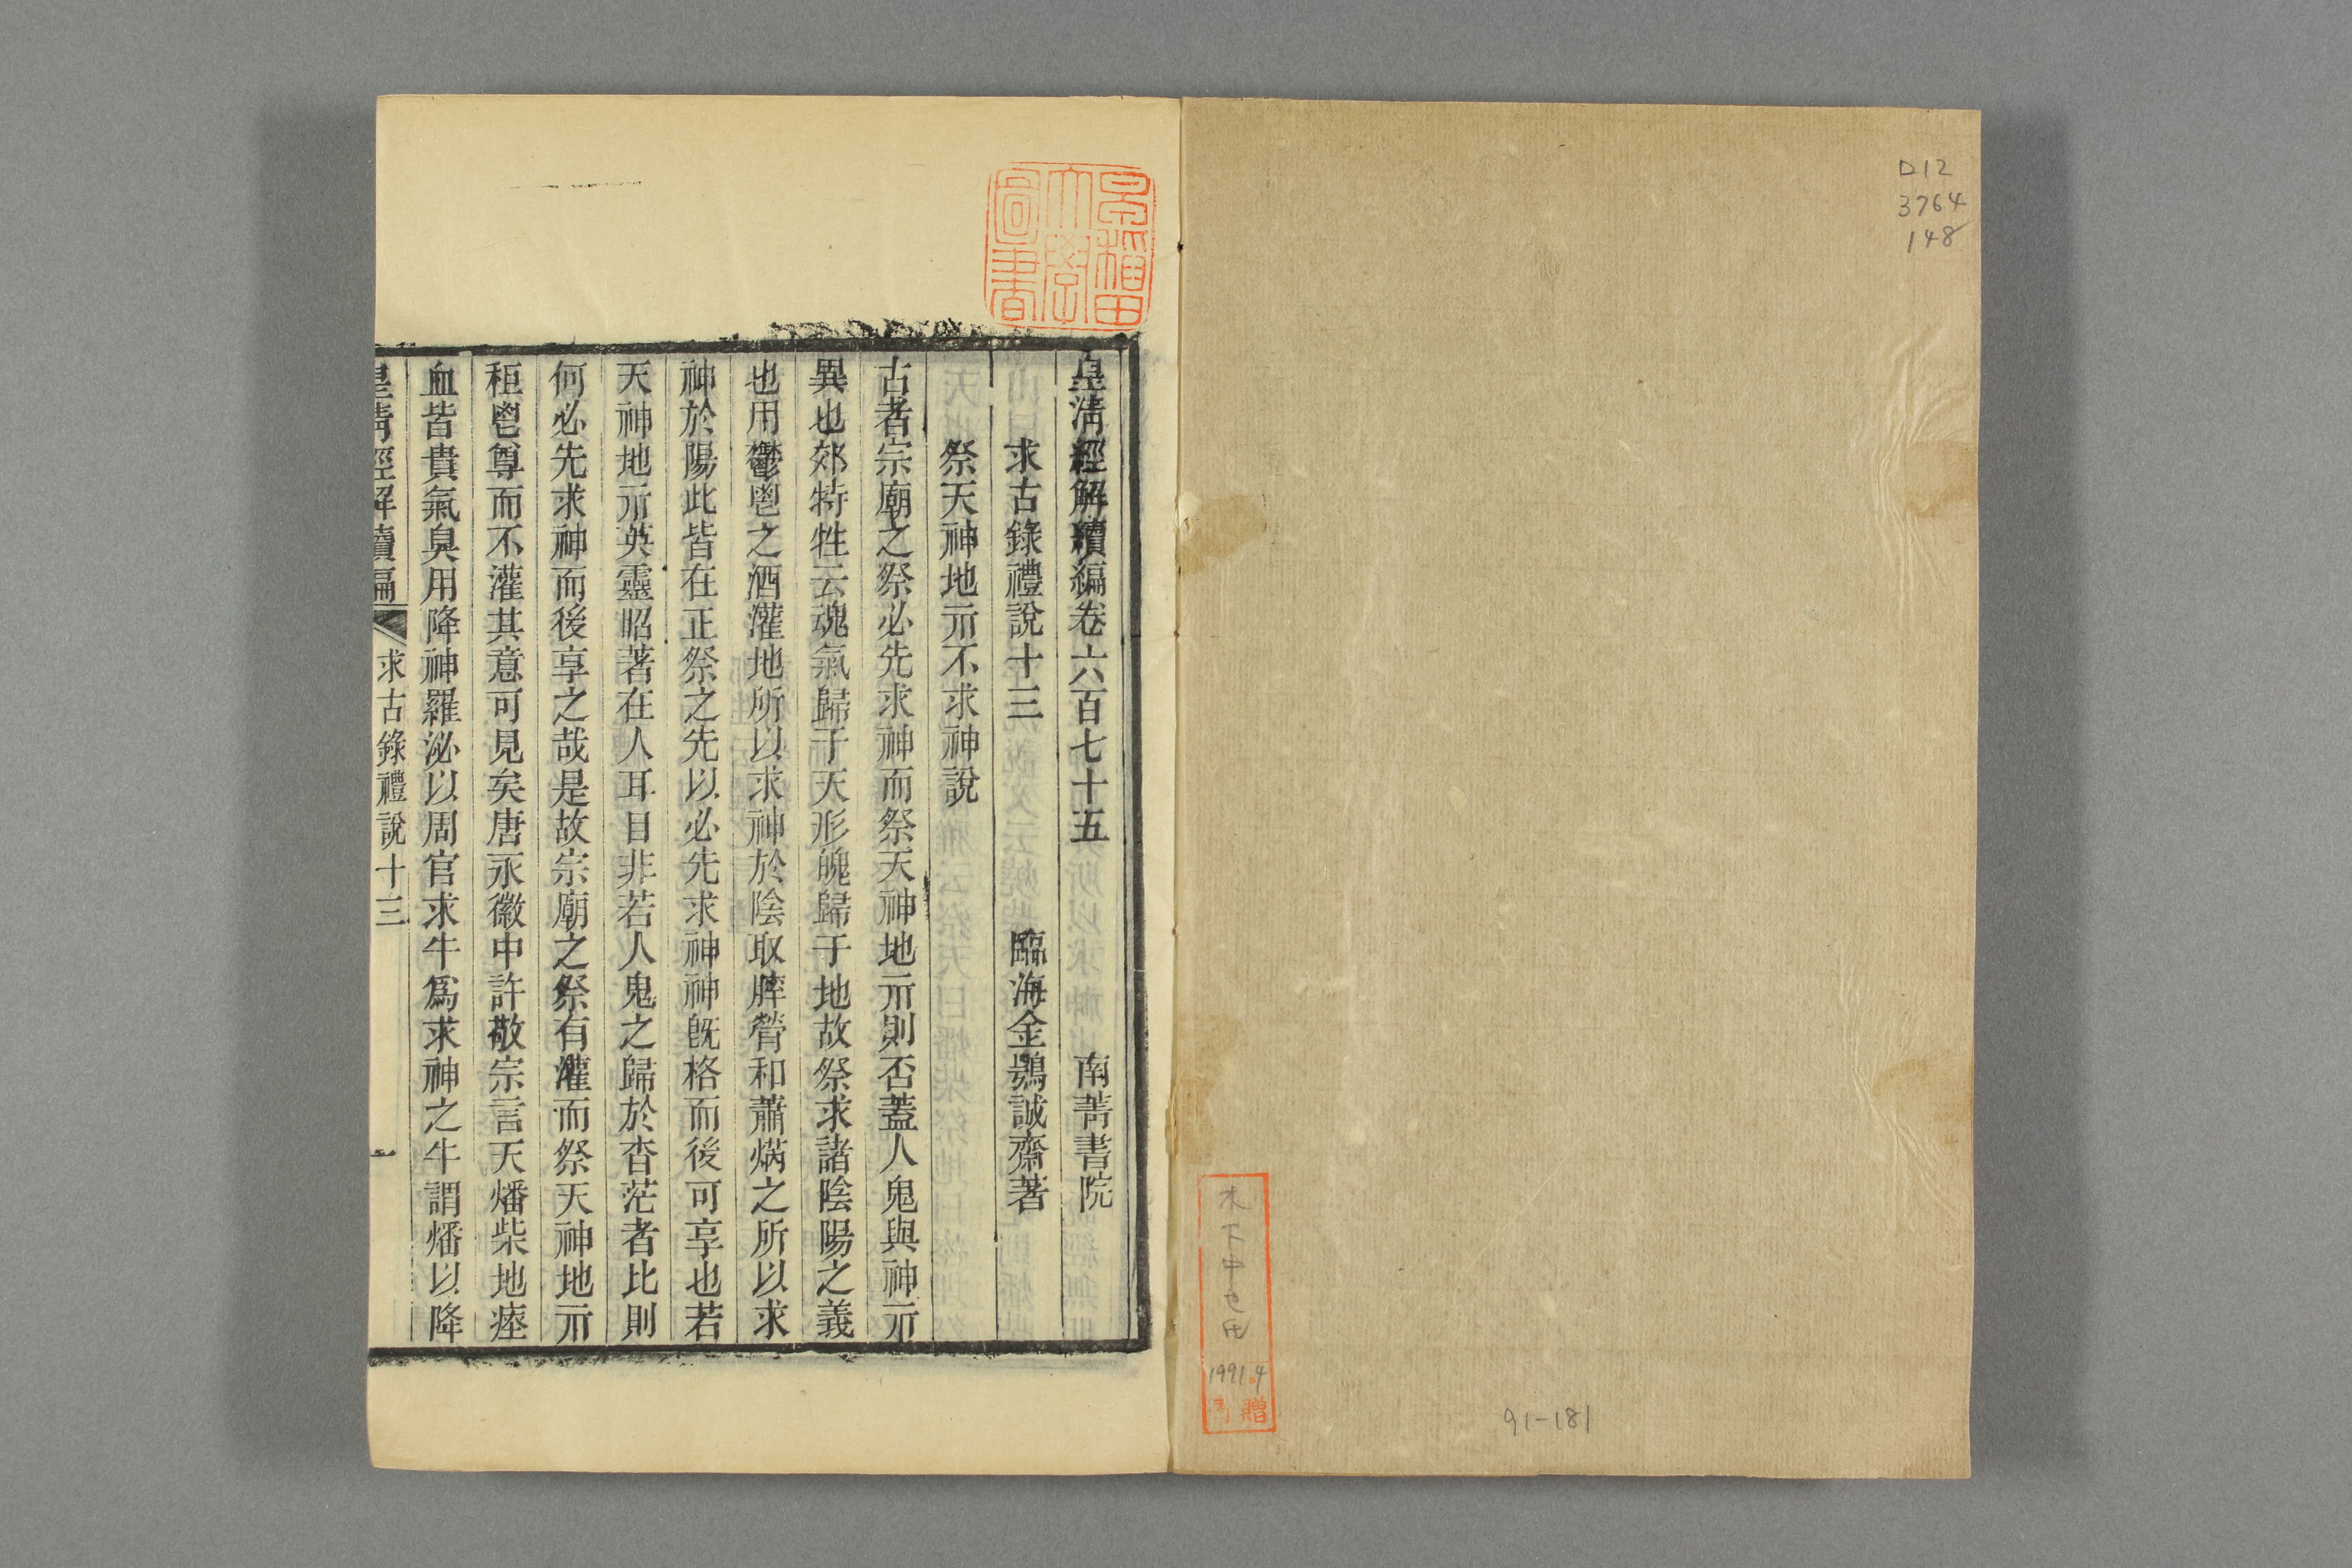 D12
3764
148
木下中也氏
1991.4
贈
91-181
早稲田
大學
圖書
皇淸經解續編卷六百七十五 南菁書院
求古錄禮說十三 臨海金鶚誠齋著
祭天神地示不求神說
古者宗廟之祭必先求神而祭天神地示則否蓋人鬼與神示
異也郊特牲云魂氣歸于天形魄歸于地故祭求諸陰陽之義
也用鬱鬯之酒灌地所以求神於陰取膟膋和蕭焫之所以求
神於陽此皆在正祭之先以必先求神神旣格而後可享也若
天神地示英靈昭著在人耳目非若人鬼之歸於杳茫者比則
何必先求神而後享之哉是故宗廟之祭有灌而祭天神地示
秬鬯尊而不灌其意可見矣唐永徽中許敬宗言天燔柴地瘞
血皆貴氣臭用降神羅泌以周官求牛爲求神之牛謂燔以降
皇淸經解續編 求古錄禮說十三 一